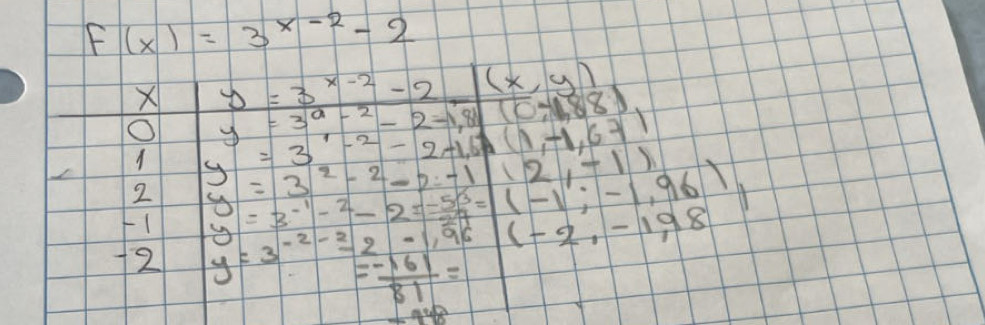 F(x) = 3^(x-2) - 2
x | y = 3^(x-2) - 2 | (x, y)
0 | y = 3^(0-2) - 2 = -1,88 | (0, -1,88),
1 | y = 3^(1-2) - 2 = -1,67 | (1, -1,67)
2 | y = 3^(2-2) - 2 = -1 | (2, -1)
-1 | y = 3^(-1-2) - 2 = -53/27 = -1,96 | (-1; -1,96),
-2 | y = 3^(-2-2) - 2 | (-2, -1,98
= -161/81 =